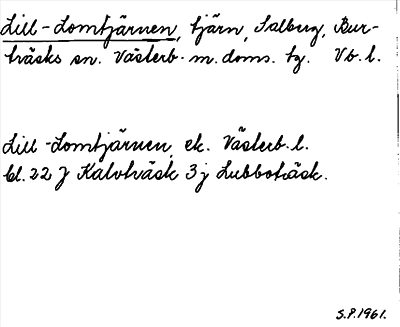 Lill-Lomtjärnen, tjärn, Salberg, Bur-
träsks sn. Västerb. m. doms. tg. Vb. l.
Lill-Lomtjärnen, ek. Västerb. l.
bl. 22 J Kalvträsk 3 j Lubboträsk.
S.P. 1961.